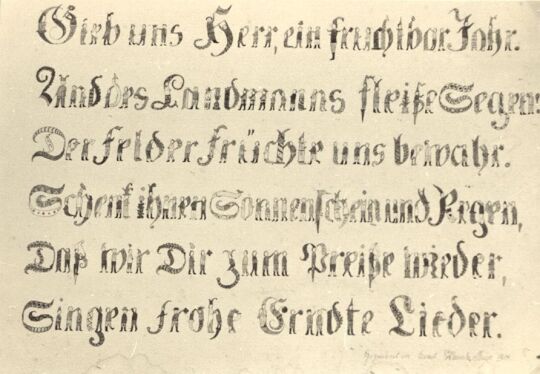 Gieb uns Herr, ein fruchtbar Jahr.
Und des Landmanns fleiße Segen:
Der Felder Früchte uns bewahr.
Schenk ihnen Sonnenschein und Regen,
Daß wir Dir zum Preiße wieder,
Singen frohe Erndte Lieder.